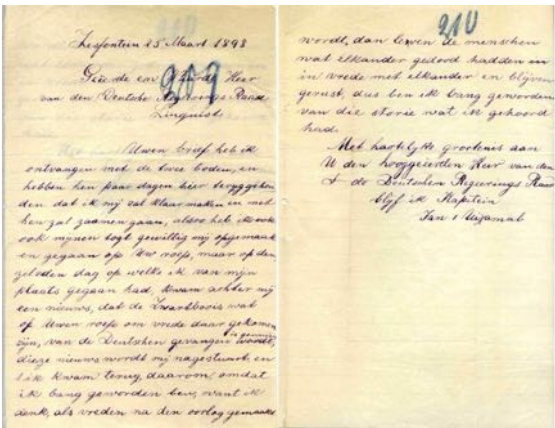 Zesfontein 25 Maart 1898
207
Geerde en Waarde Heer
van den Deutsche Regeerings Raad
Linquist
Uwen brief heb ik
ontvangen met de twee boden, en
hebben hen paar dagen hier teruggehou
den dat ik mij zal klaar maken en met
hen zal zaamen gaan, alzoo heb ik ook
ook mynen togt gewillig my opgemaak
en gegaan op Uw roep, maar op den
zelvden dag op welke ik van mijn
plaats gegaan had, kwam achter my
een nieuws, dat de Zwartboois wat
op Uwen roep om vrede daar gekomen
zijn, van de Deutschen gevangen wordt,
dieze nieuws wordt mij nagestuurt, en
ik kwam terug, daarom omdat
ik bang geworden ben, want ik
denk, als vreden na den oorlog gemaakt
210
wordt, dan leven de menschen
wat elkander gedood hadden in
in vrede met elkander en blijven
gerust, dus ben ik bang geworden
van die storie wat ik gehoord
had.
Met hartelyke groetenis aan
U den hooggeeerden Heer van den
de Deutschen Regeerings Raad
blyf ik Kapitein
Jan Uixamab